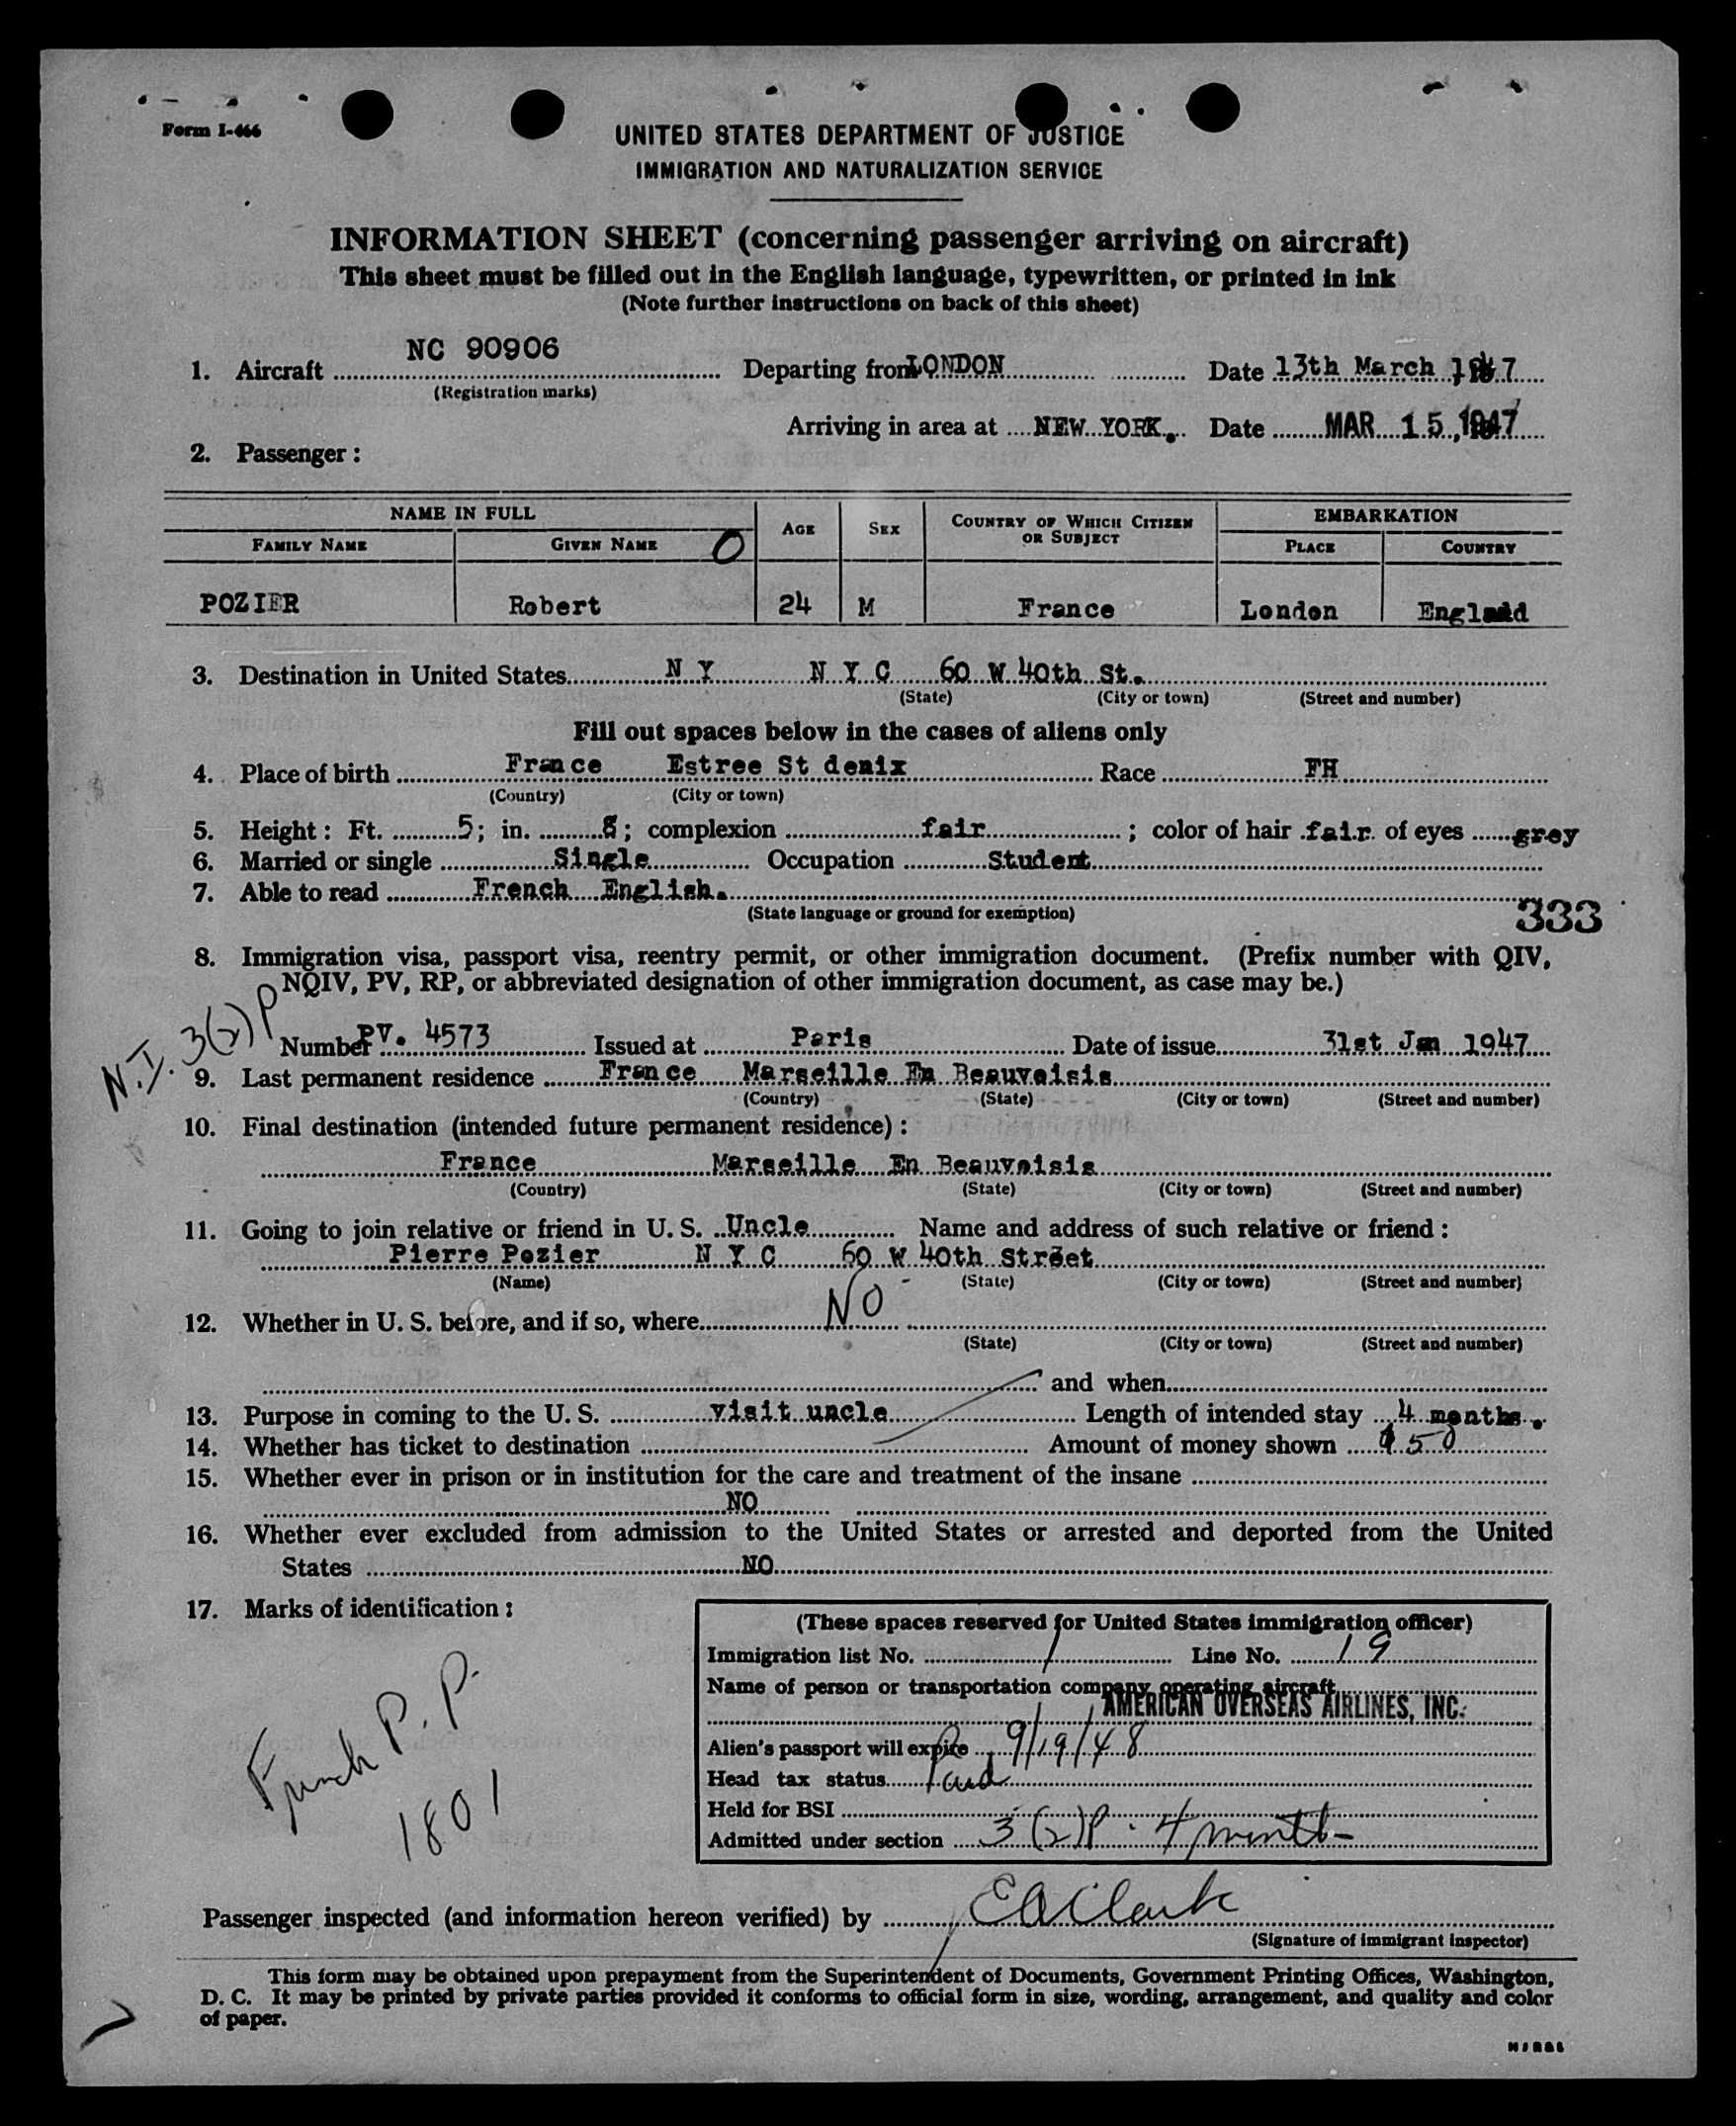 Form I-466
UNITED STATES DEPARTMENT OF JUSTICE
IMMIGRATION AND NATURALIZATION SERVICE
INFORMATION SHEET (concerning passenger arriving on aircraft)
This sheet must be filled out in the English language, typewritten, or printed in ink
(Note further instructions on back of this sheet)
1. Aircraft NC 90906 Departing from LONDON Date 13th March 1947
(Registration marks)
Arriving in area at NEW YORK. Date MAR 15, 1947
2. Passenger:
NAME IN FULL AGE SEX COUNTRY OF WHICH CITIZEN OR SUBJECT EMBARKATION
FAMILY NAME GIVEN NAME O PLACE COUNTRY
POZIER Robert 24 M France London England
3. Destination in United States N Y N Y C 60 W 40th St.
(State) (City or town) (Street and number)
Fill out spaces below in the cases of aliens only
4. Place of birth France Estree St denix Race FH
(Country) (City or town)
5. Height: Ft. 5; in. 8; complexion fair; color of hair fair of eyes grey
6. Married or single Single Occupation Student
7. Able to read French English.
(State language or ground for exemption)
333
8. Immigration visa, passport visa, reentry permit, or other immigration document. (Prefix number with QIV,
NQIV, PV, RP, or abbreviated designation of other immigration document, as case may be.)
N.I. 3(2)P
Number PV. 4573 Issued at Paris Date of issue 31st Jan 1947
9. Last permanent residence France Marseille En Beauvoisis
(Country) (State) (City or town) (Street and number)
10. Final destination (intended future permanent residence):
France Marseille En Beauvoisis
(Country) (State) (City or town) (Street and number)
11. Going to join relative or friend in U. S. Uncle Name and address of such relative or friend:
Pierre Pozier N Y C 60 W 40th Street
(Name) (State) (City or town) (Street and number)
12. Whether in U. S. before, and if so, where NO
(State) (City or town) (Street and number)
and when
13. Purpose in coming to the U. S. visit uncle Length of intended stay 4 months.
14. Whether has ticket to destination Amount of money shown $50
15. Whether ever in prison or in institution for the care and treatment of the insane
NO
16. Whether ever excluded from admission to the United States or arrested and deported from the United
States NO
17. Marks of identification:
French P. P.
1801
(These spaces reserved for United States immigration officer)
Immigration list No. 1 Line No. 19
Name of person or transportation company operating aircraft
AMERICAN OVERSEAS AIRLINES, INC.
Alien's passport will expire 9/19/48
Head tax status Paid
Held for BSI
Admitted under section 3(2)P. 4 month
Passenger inspected (and information hereon verified) by E A Clark
(Signature of immigrant inspector)
This form may be obtained upon prepayment from the Superintendent of Documents, Government Printing Offices, Washington,
D. C. It may be printed by private parties provided it conforms to official form in size, wording, arrangement, and quality and color
of paper.